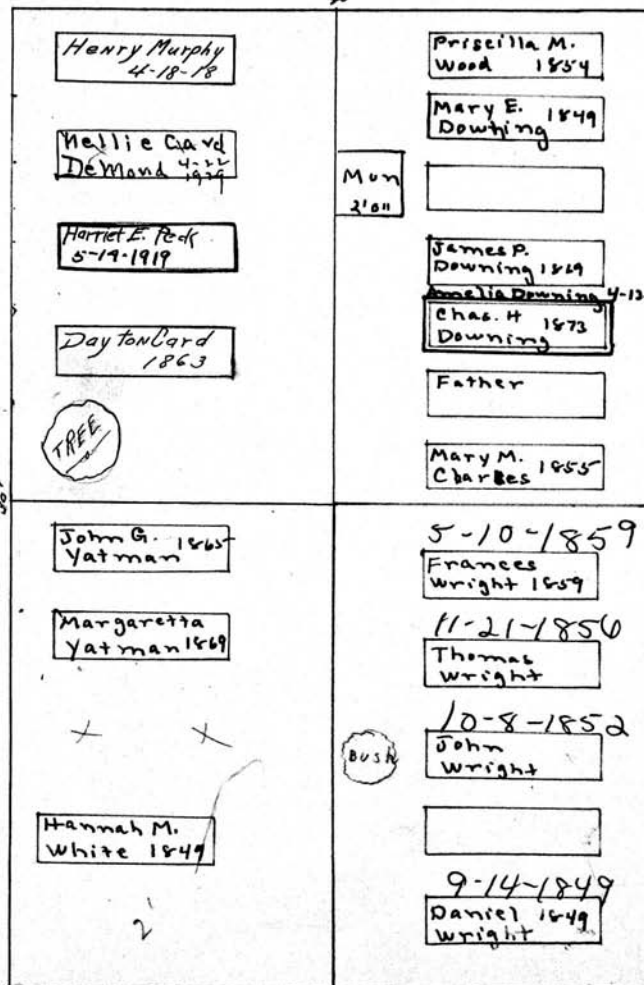 Henry Murphy
4-18-18
Nellie Card
DeMond 4-22
1929
Harriet E. Peck
5-19-1919
Dayton Card
1863
TREE
Priscilla M.
Wood 1854
Mary E. 1849
Downing
Mon
2'0"
James P.
Downing 1869
Amelia Downing 4-13
Chas. H 1873
Downing
Father
Mary M. 1855
Charles
John G. 1865
Yatman
Margaretta
Yatman 1869
Hannah M.
White 1849
2'
5-10-1859
Frances
Wright 1859
11-21-1856
Thomas
Wright
10-8-1852
John
Wright
BUSH
9-14-1849
Daniel 1849
Wright